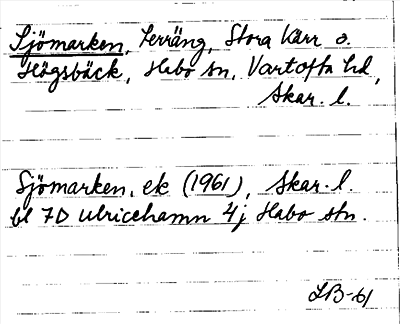 Sjömarken, Terräng, Stora Kärr o.
Högsbäck, Habo sn, Vartofta hd,
Skar. l.
Sjömarken, ek (1961), Skar. l.
bl 7D Ulricehamn 4j Habo stn.
LB-61